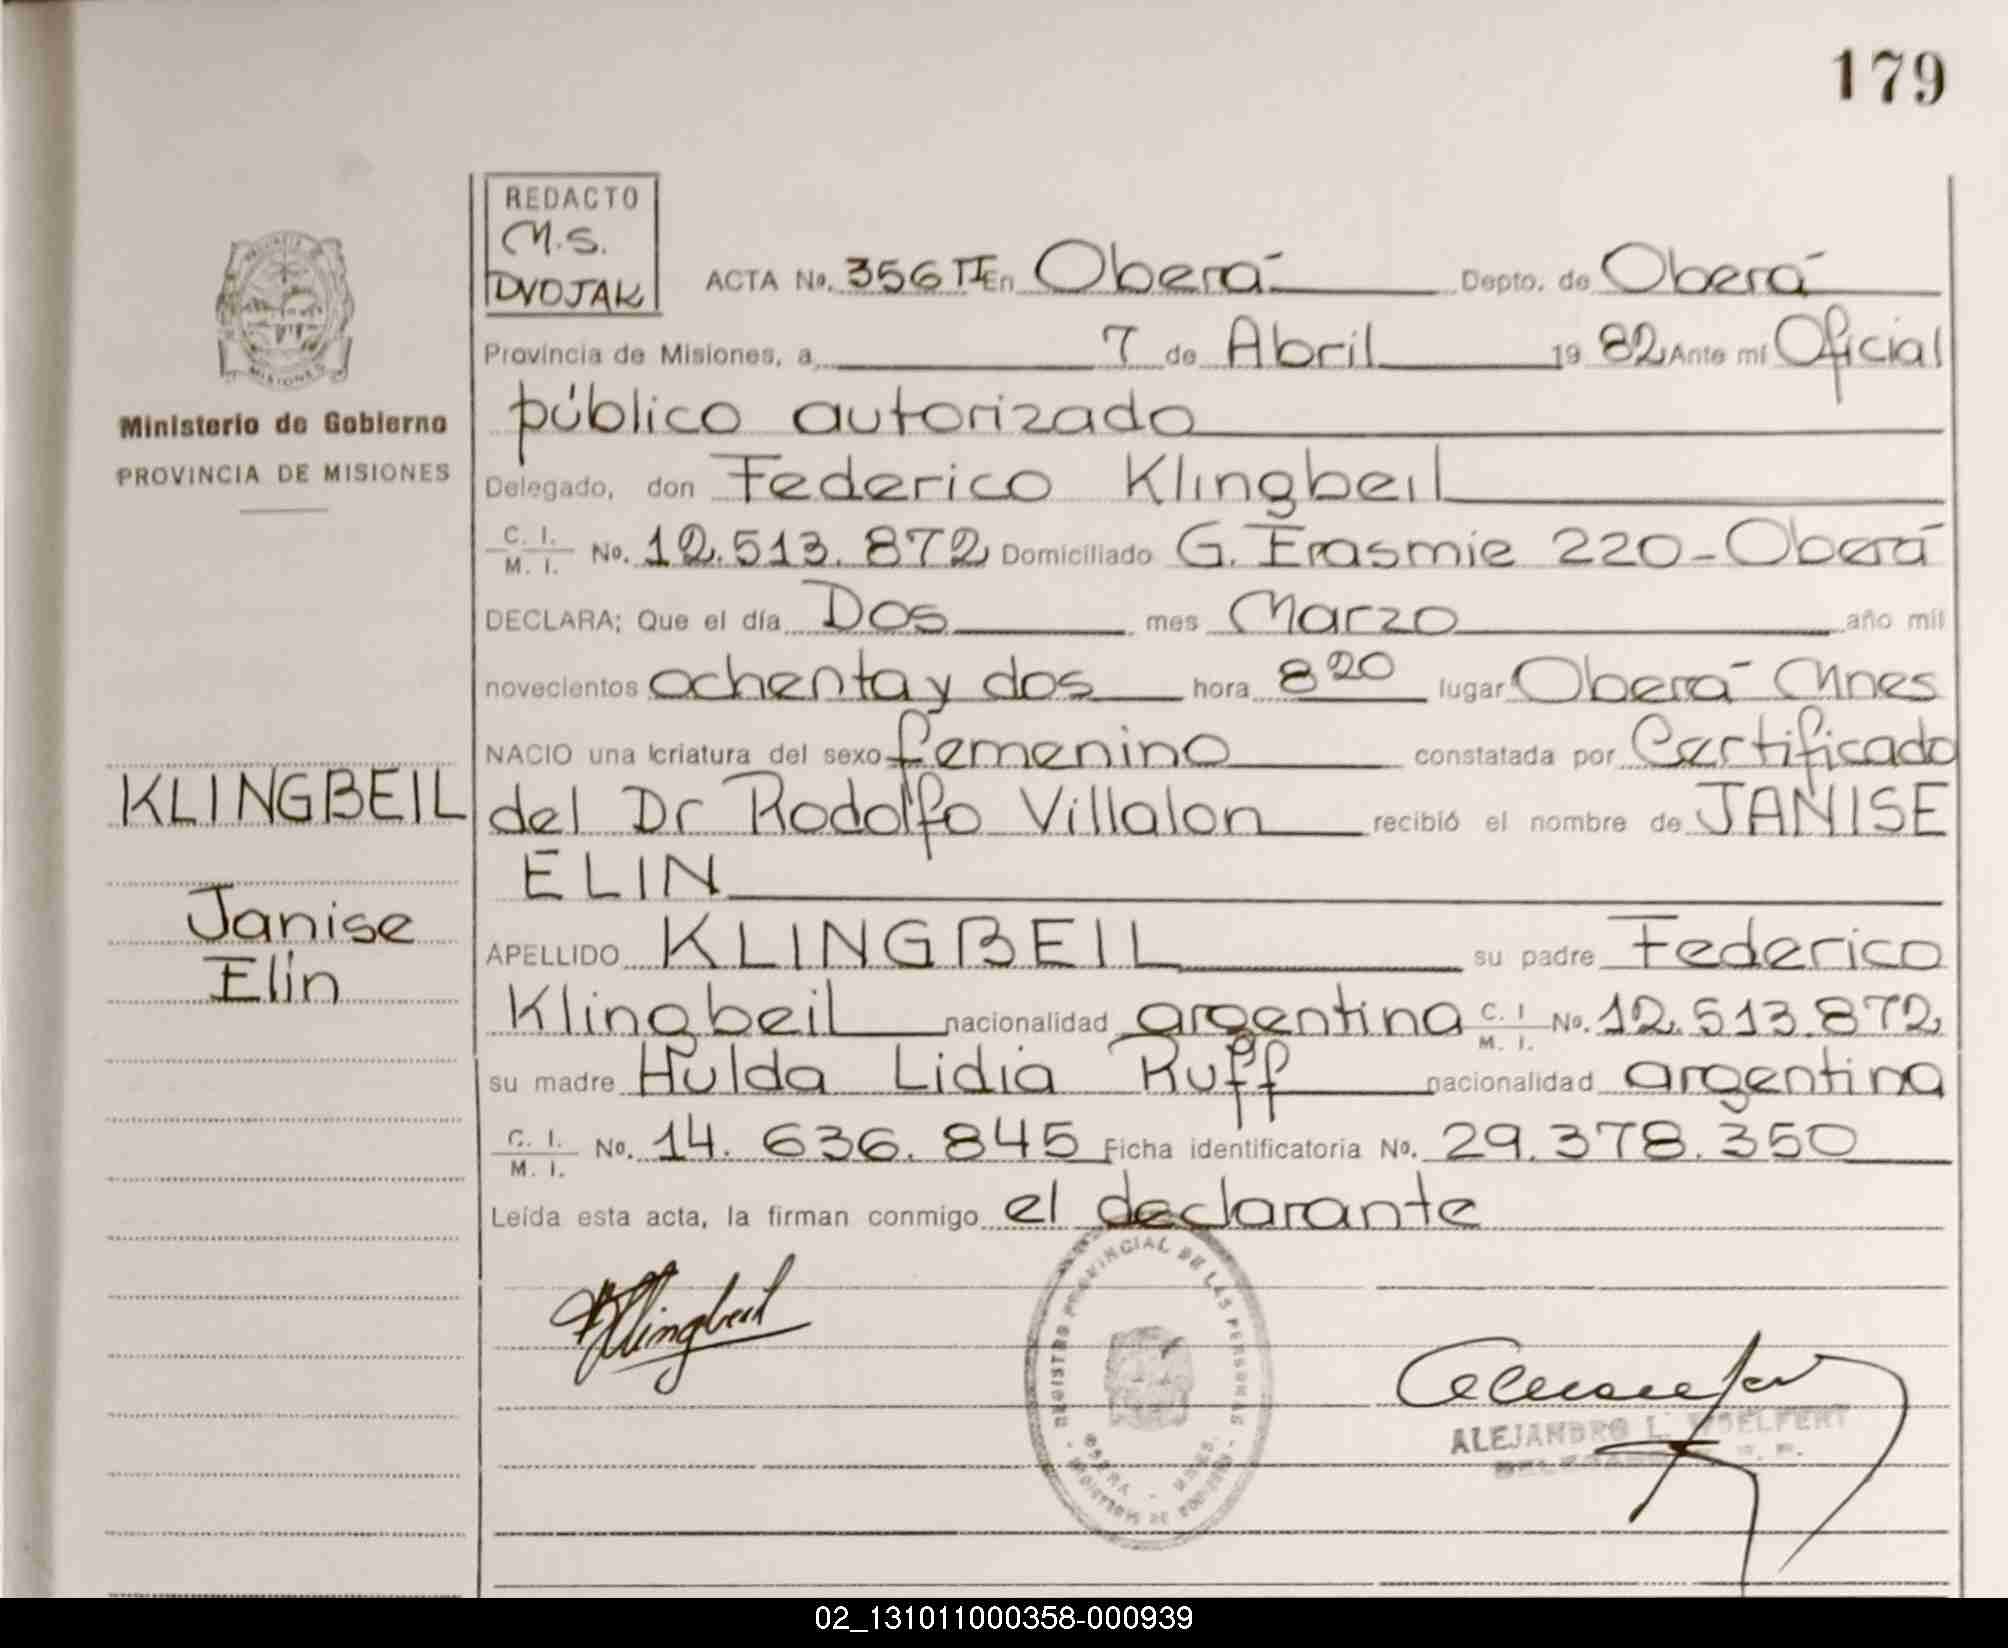 179
REDACTO
M.S.
DVOJAK
ACTA No. 356 II En Oberá Depto. de Oberá
Provincia de Misiones, a 7 de Abril 19 82 Ante mí Oficial
público autorizado
Delegado, don Federico Klingbeil
C. I. M. I. No. 12.513.872 Domiciliado G. Erasmie 220-Oberá
DECLARA; Que el día Dos mes Marzo año mil
novecientos ochenta y dos hora 8 20 lugar Oberá Mnes
NACIO una criatura del sexo femenino constatada por Certificado
del Dr Rodolfo Villalon recibió el nombre de JANISE
ELIN
APELLIDO KLINGBEIL su padre Federico
Klingbeil nacionalidad argentina C. I M. I. No. 12.513.872
su madre Hulda Lidia Ruff nacionalidad argentina
C. I. M. I. No. 14. 636. 845 Ficha identificatoria No. 29.378.350
Leída esta acta, la firman conmigo el declarante
MISIONES
Ministerio de Gobierno
PROVINCIA DE MISIONES
KLINGBEIL
Janise
Elin
Klingbeil
REGISTRO PROVINCIAL DE LAS PERSONAS
OBERA - MNES.
MINISTERIO DE GOBIERNO
ALEJANDRO L. WOELFERT
02_131011000358-000939